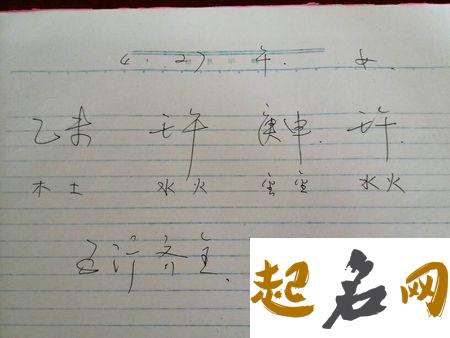 4.27 午. 女
乙未 壬午 庚申. 壬午.
木 土 水 火 金 金 水 火
五行齐全.
起名网